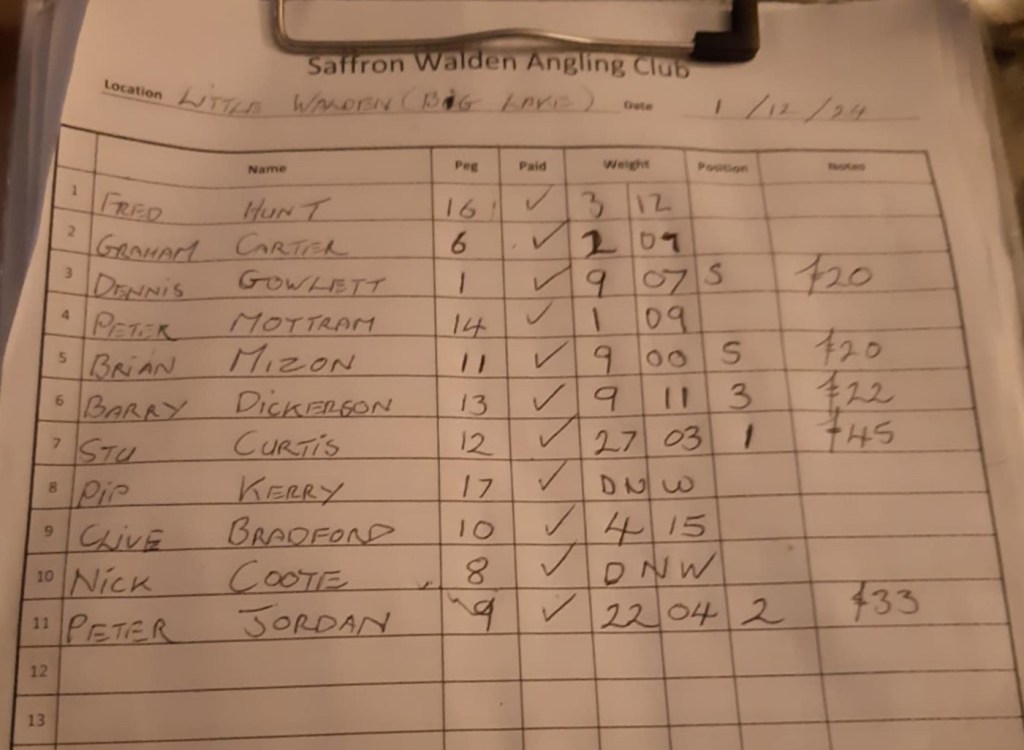 Saffron Walden Angling Club
Location LITTLE WALDEN (BIG LAKE) Date 1/12/24
Name Peg Paid Weight Position Notes
1 FRED HUNT 16 ✓ 3 12
2 GRAHAM CARTER 6 ✓ 2 09
3 DENNIS GOWLETT 1 ✓ 9 07 S £20
4 PETER MOTTRAM 14 ✓ 1 09
5 BRIAN MIZON 11 ✓ 9 00 S £20
6 BARRY DICKERSON 13 ✓ 9 11 3 £22
7 STU CURTIS 12 ✓ 27 03 1 £45
8 PIP KERRY 17 ✓ DNW
9 CLIVE BRADFORD 10 ✓ 4 15
10 NICK COOTE 8 ✓ DNW
11 PETER JORDAN 9 ✓ 22 04 2 £33
12
13